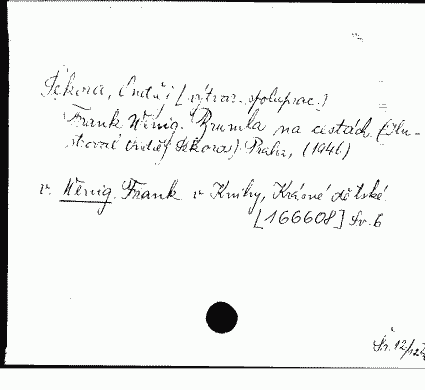 Sekora, Ondřej [výtvar. spoluprac.]
Frank Wenig. Brumla na cestách. (Ilu-
stroval Ondřej Sekora). Praha, (1946)
v. Wenig Frank v Knihy, Krásné dětské
[166608] Sv. 6
Sr. 12/12